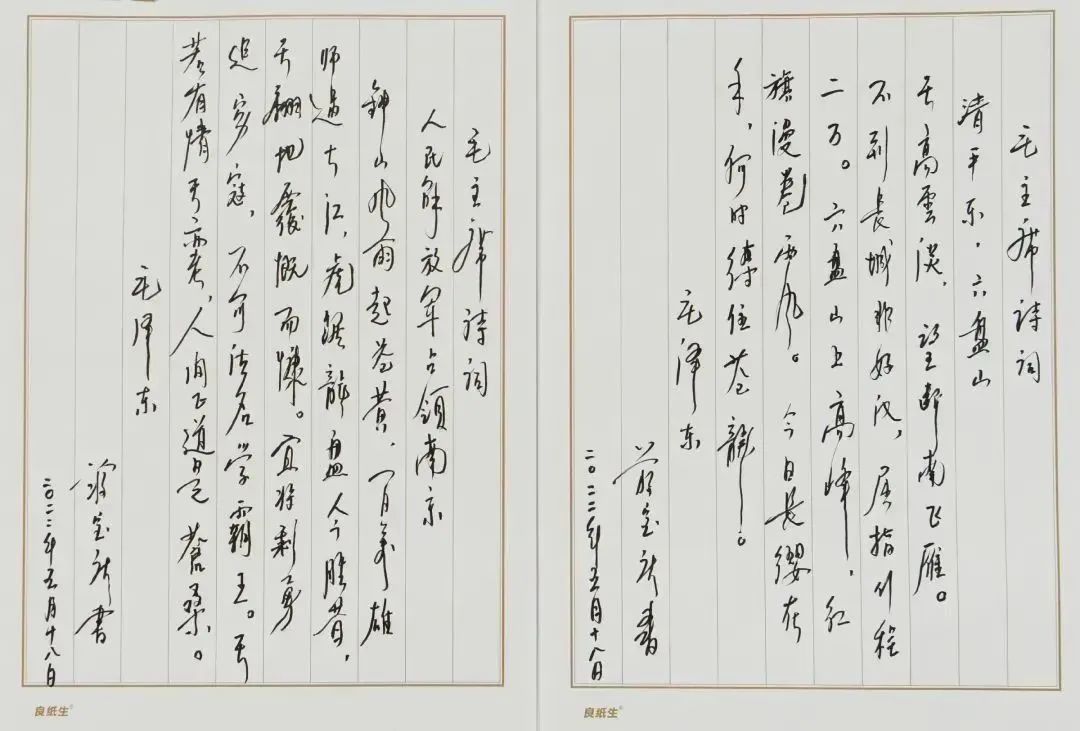 毛主席诗词
清平乐·六盘山
天高雲淡，望断南飞雁。
不到長城非好汉，屈指行程
二万。六盘山上高峰，红
旗漫卷西风。今日長缨在
手，何时缚住苍龍。
毛泽东
宝庆书
二〇二二年五月十八日
良纸生
毛主席诗词
人民解放军占领南京
鍾山风雨起苍黄，百万雄
师过大江，虎踞龍盘今胜昔，
天翻地覆慨而慷。宜将剩勇
追穷寇，不可沽名学霸王。天
若有情天亦老，人间正道是蒼桑。
毛泽东
宝庆書
二〇二二年五月十八日
良纸生